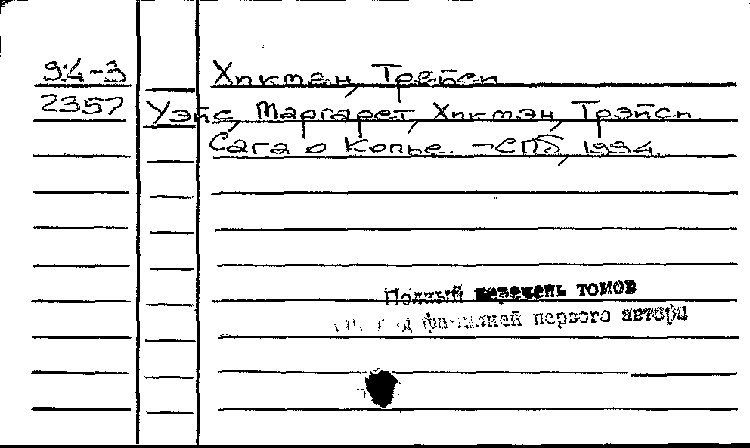 94-3 Хикман, Трейси
2357 Уэйс, Маргарет, Хикман, Трэйси
Сага о Копье. - СПб, 1994.
Полный перечень томов
под фамилией первого автора